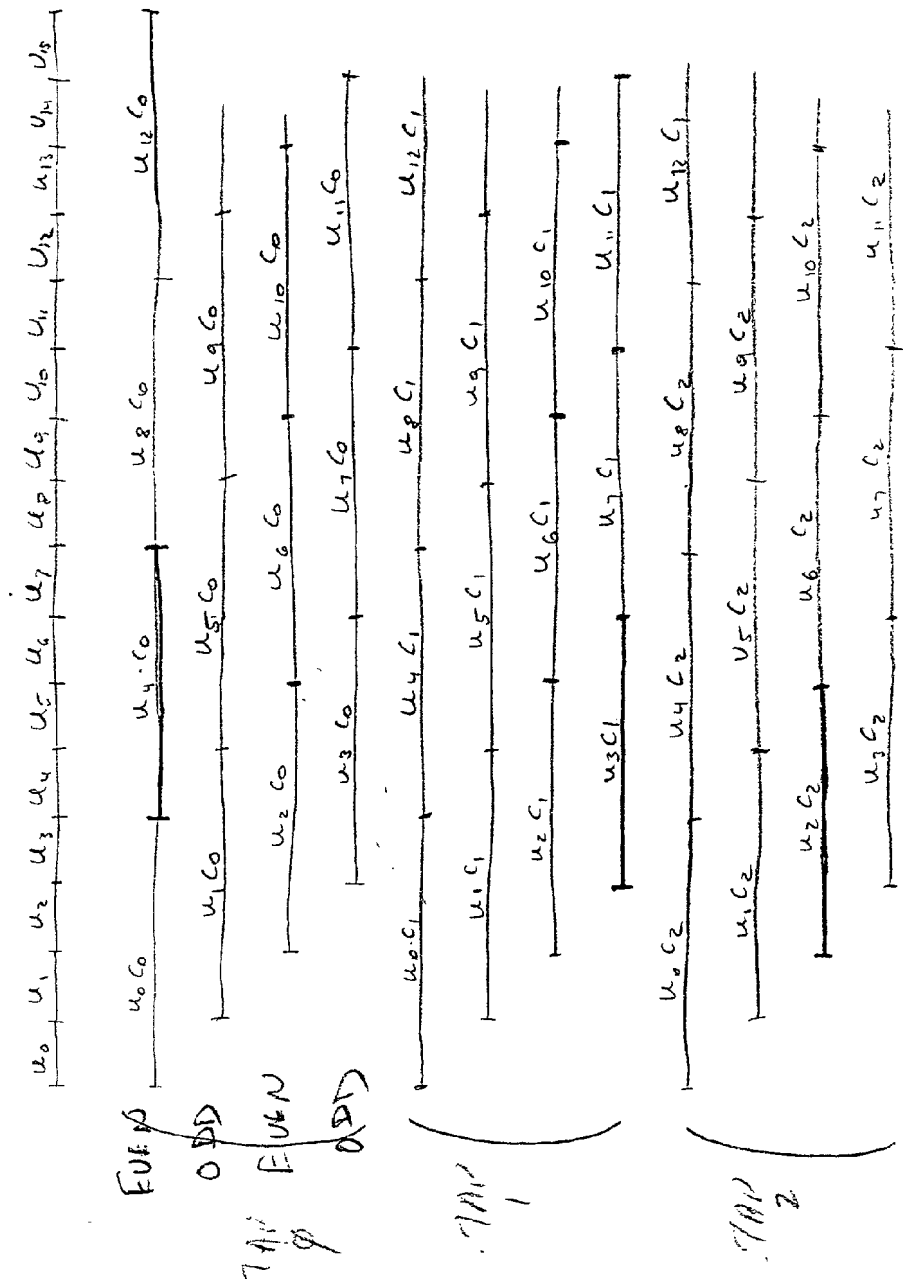 u0 u1 u2 u3 u4 u5 u6 u7 u8 u9 u10 u11 u12 u13 u14 u15
EVEN u0 C0 u4·C0 u8 C0 u12 C0
ODD u1 C0 u5 C0 u9 C0
EVEN u2 C0 u6 C0 u10 C0
ODD u3 C0 u7 C0 u11 C0
TAP 0
u0·C1 u4 C1 u8 C1 u12 C1
u1 C1 u5 C1 u9 C1
u2 C1 u6 C1 u10 C1
u3 C1 u7 C1 u11 C1
TAP 1
u0 C2 u4 C2 u8 C2 u12 C1
u1 C2 u5 C2 u9 C2
u2 C2 u6 C2 u10 C2
u3 C2 u7 C2 u11 C2
TAP 2